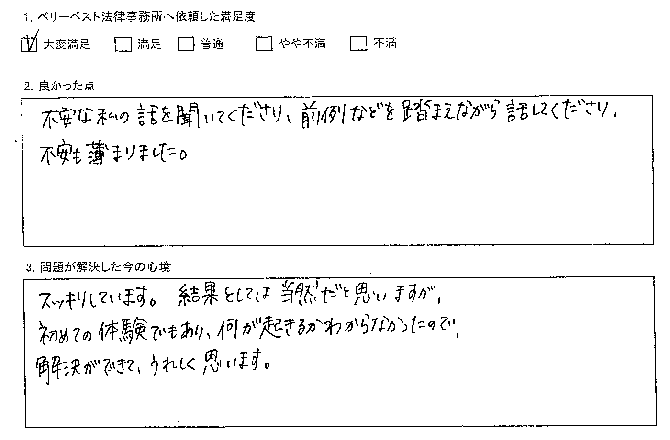 1. ベリーベスト法律事務所へ依頼した満足度
☑ 大変満足 □ 満足 □ 普通 □ やや不満 □ 不満
2. 良かった点
不安な私の話を聞いてくださり、前例などを踏まえながら話してくださり、
不安も薄まりました。
3. 問題が解決した今の心境
スッキリしています。結果としては当然だと思いますが、
初めての体験でもあり、何が起きるかわからなかったので、
解決ができて、うれしく思います。